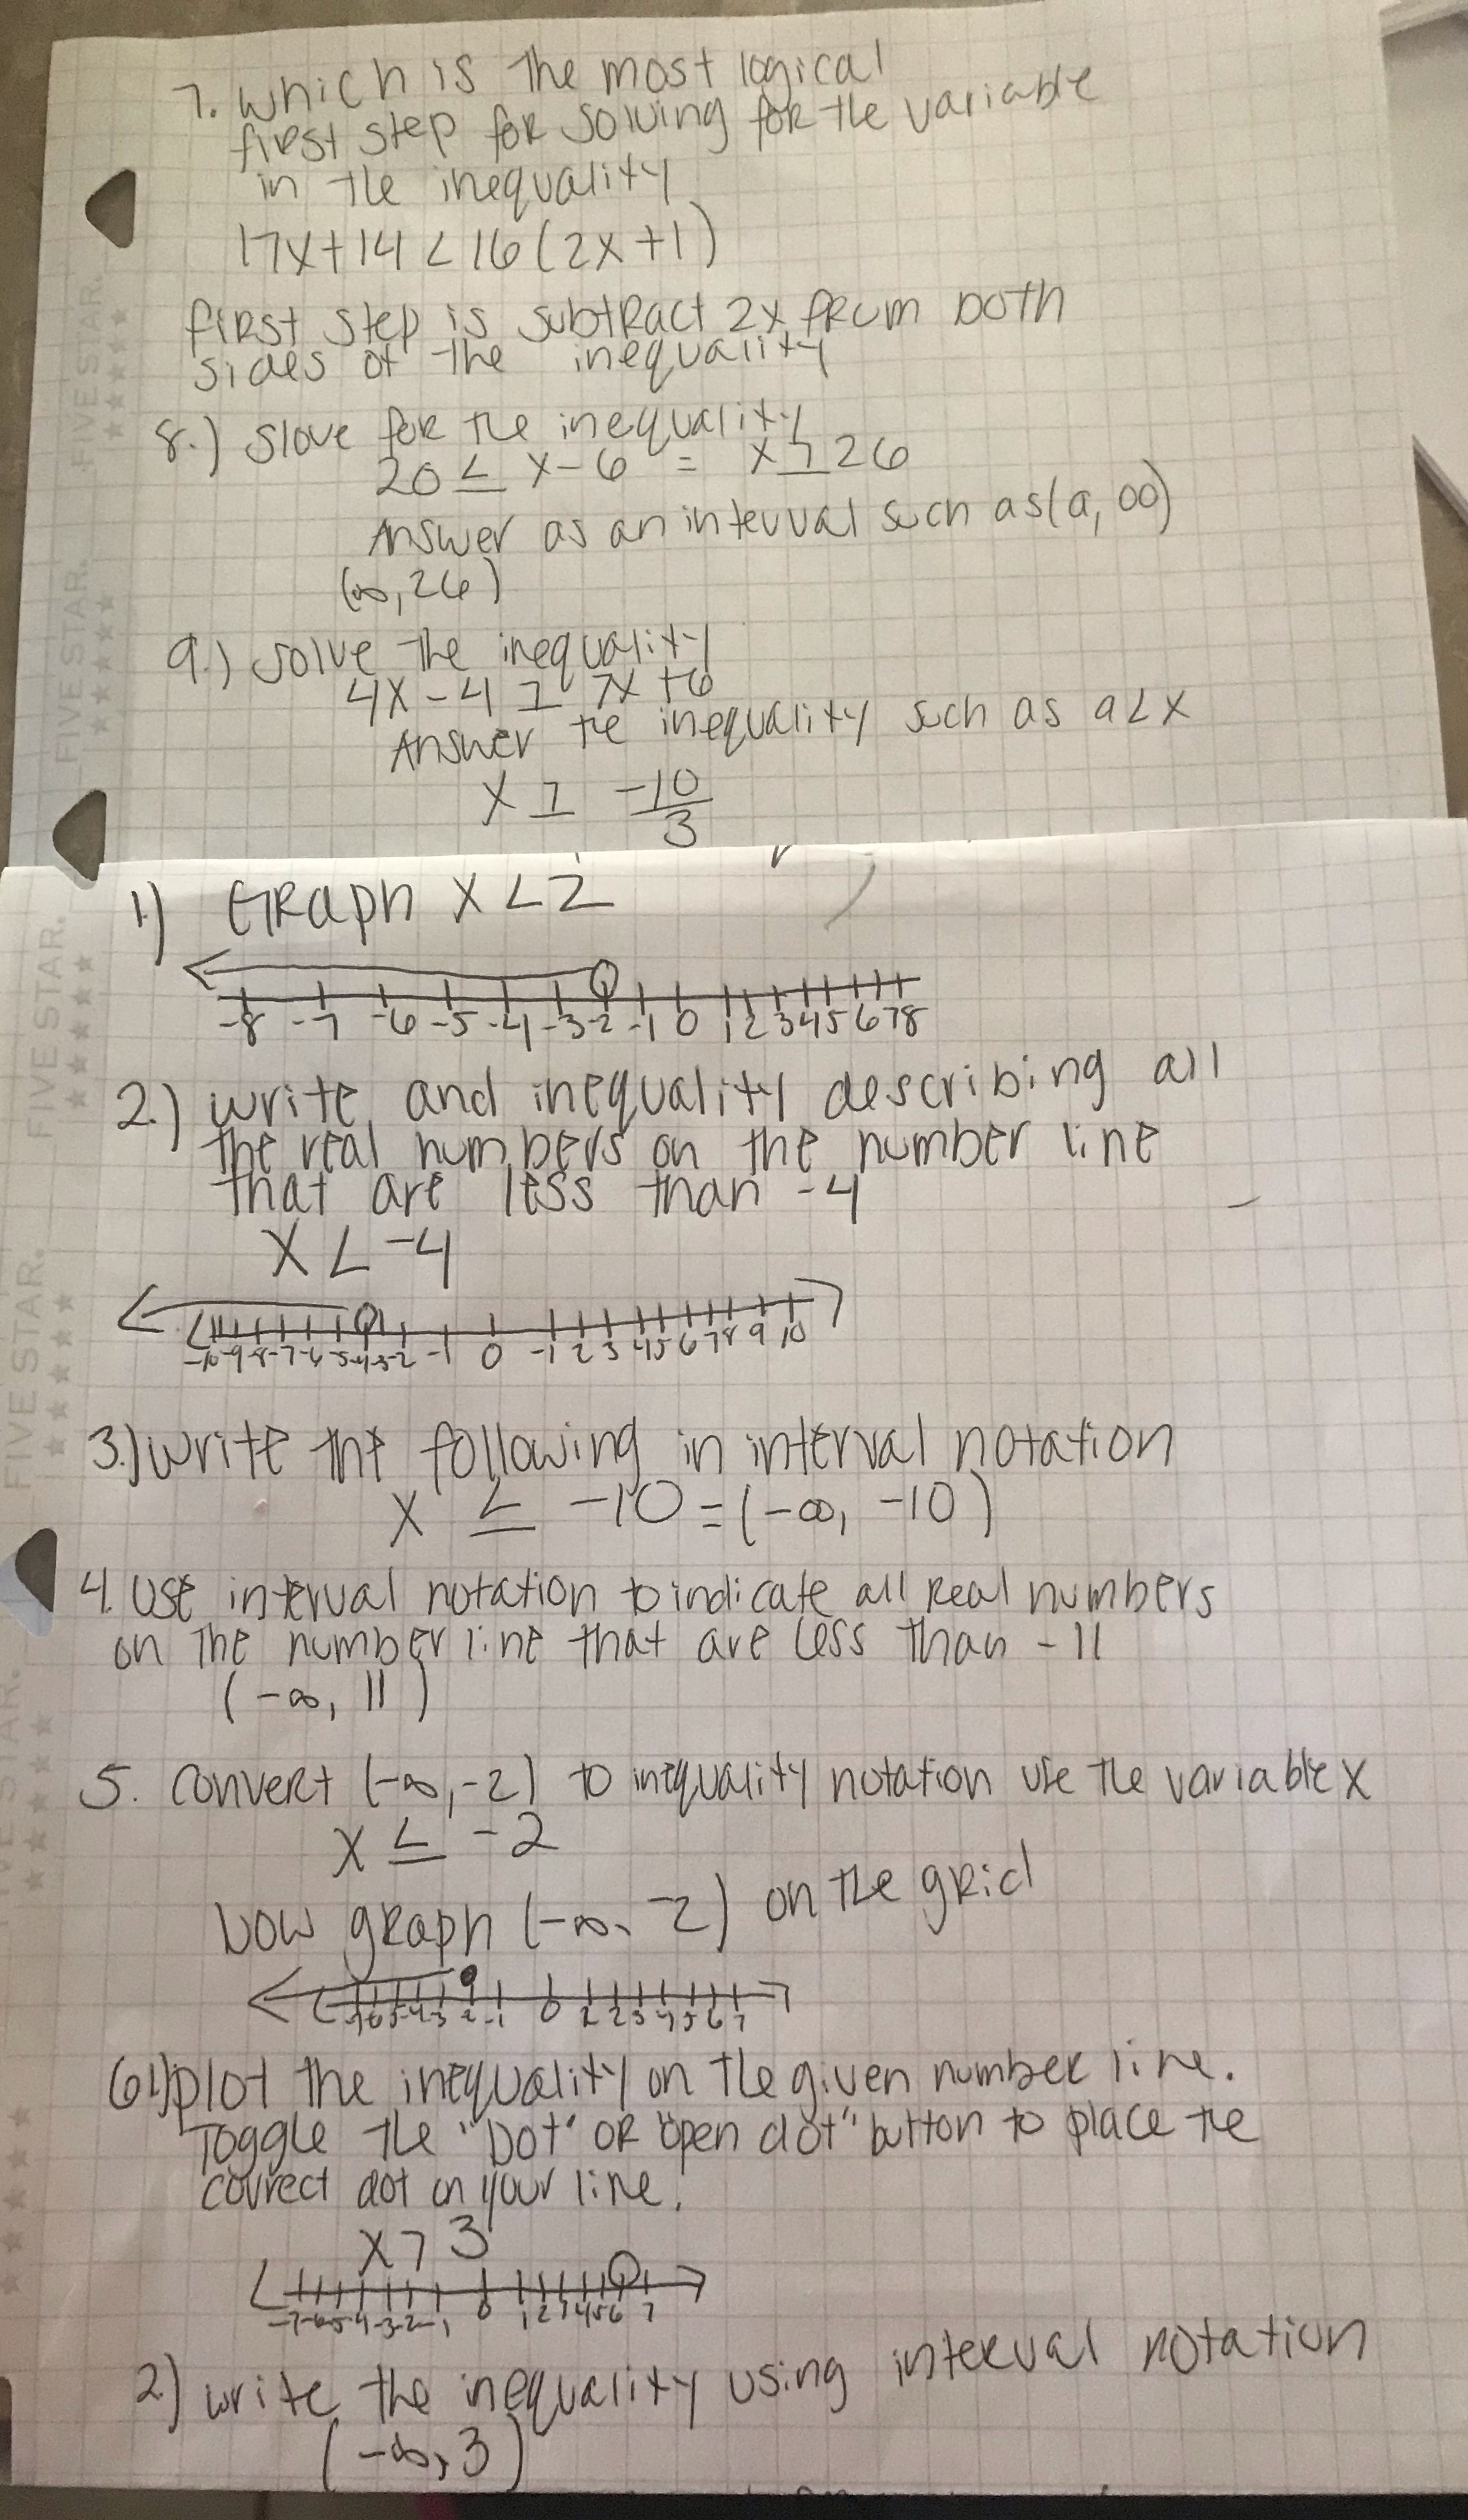 7. which is the most logical
first step for solving for the variable
in the inequality
17x+14 < 16(2x+1)
first step is subtract 2x from both
sides of the inequality
8.) Slove for the inequality
20 ≤ x-6 = x ≥ 26
Answer as an interval such as (a, ∞)
(∞, 26)
9.) solve the inequality
4x-4 ≥ 7x+6
Answer the inequality such as a<x
x ≥ -10/3
1) Graph x<2
-8 -7 -6 -5 -4 -3 -2 -1 0 1 2 3 4 5 6 7 8
2.) write and inequality describing all
the real numbers on the number line
that are less than -4
x < -4
-10 -9 -8 -7 -6 -5 -4 -3 -2 -1 0 -1 2 3 4 5 6 7 8 9 10
3.) write the following in interval notation
x ≤ -10 = (-∞, -10)
4. use interval notation to indicate all real numbers
on the number line that are less than -11
(-∞, 11)
5. convert (-∞, -2) to inequality notation use the variable x
x ≤ -2
Now graph (-∞, -2) on the grid
0 2 2 3 4 5 6 7
6.1) plot the inequality on the given number line.
Toggle the "Dot" or "open dot" button to place the
correct dot on your line.
x > 3
-7 -6 -5 -4 -3 -2 -1 0 1 2 3 4 5 6 7
2) write the inequality using interval notation
(-∞, 3)
FIVE STAR.
FIVE STAR.
FIVE STAR.
FIVE STAR.
FIVE STAR.